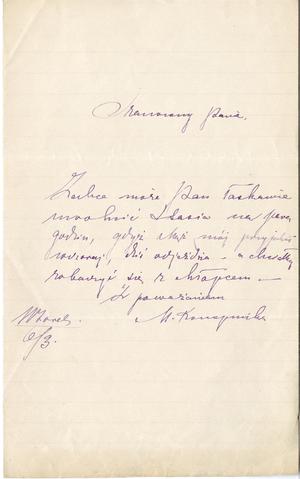 Szanowny Panie.
Zechce może Pan łaskawie
uwolnić Stasia na parę
godzin, gdyż Mąż mój przyjechał
wczoraj, dziś odjeżdża – a chciałby
zobaczyć się z chłopcem –
Z poważaniem
M. Konopnicka
Wtorek
6/3.